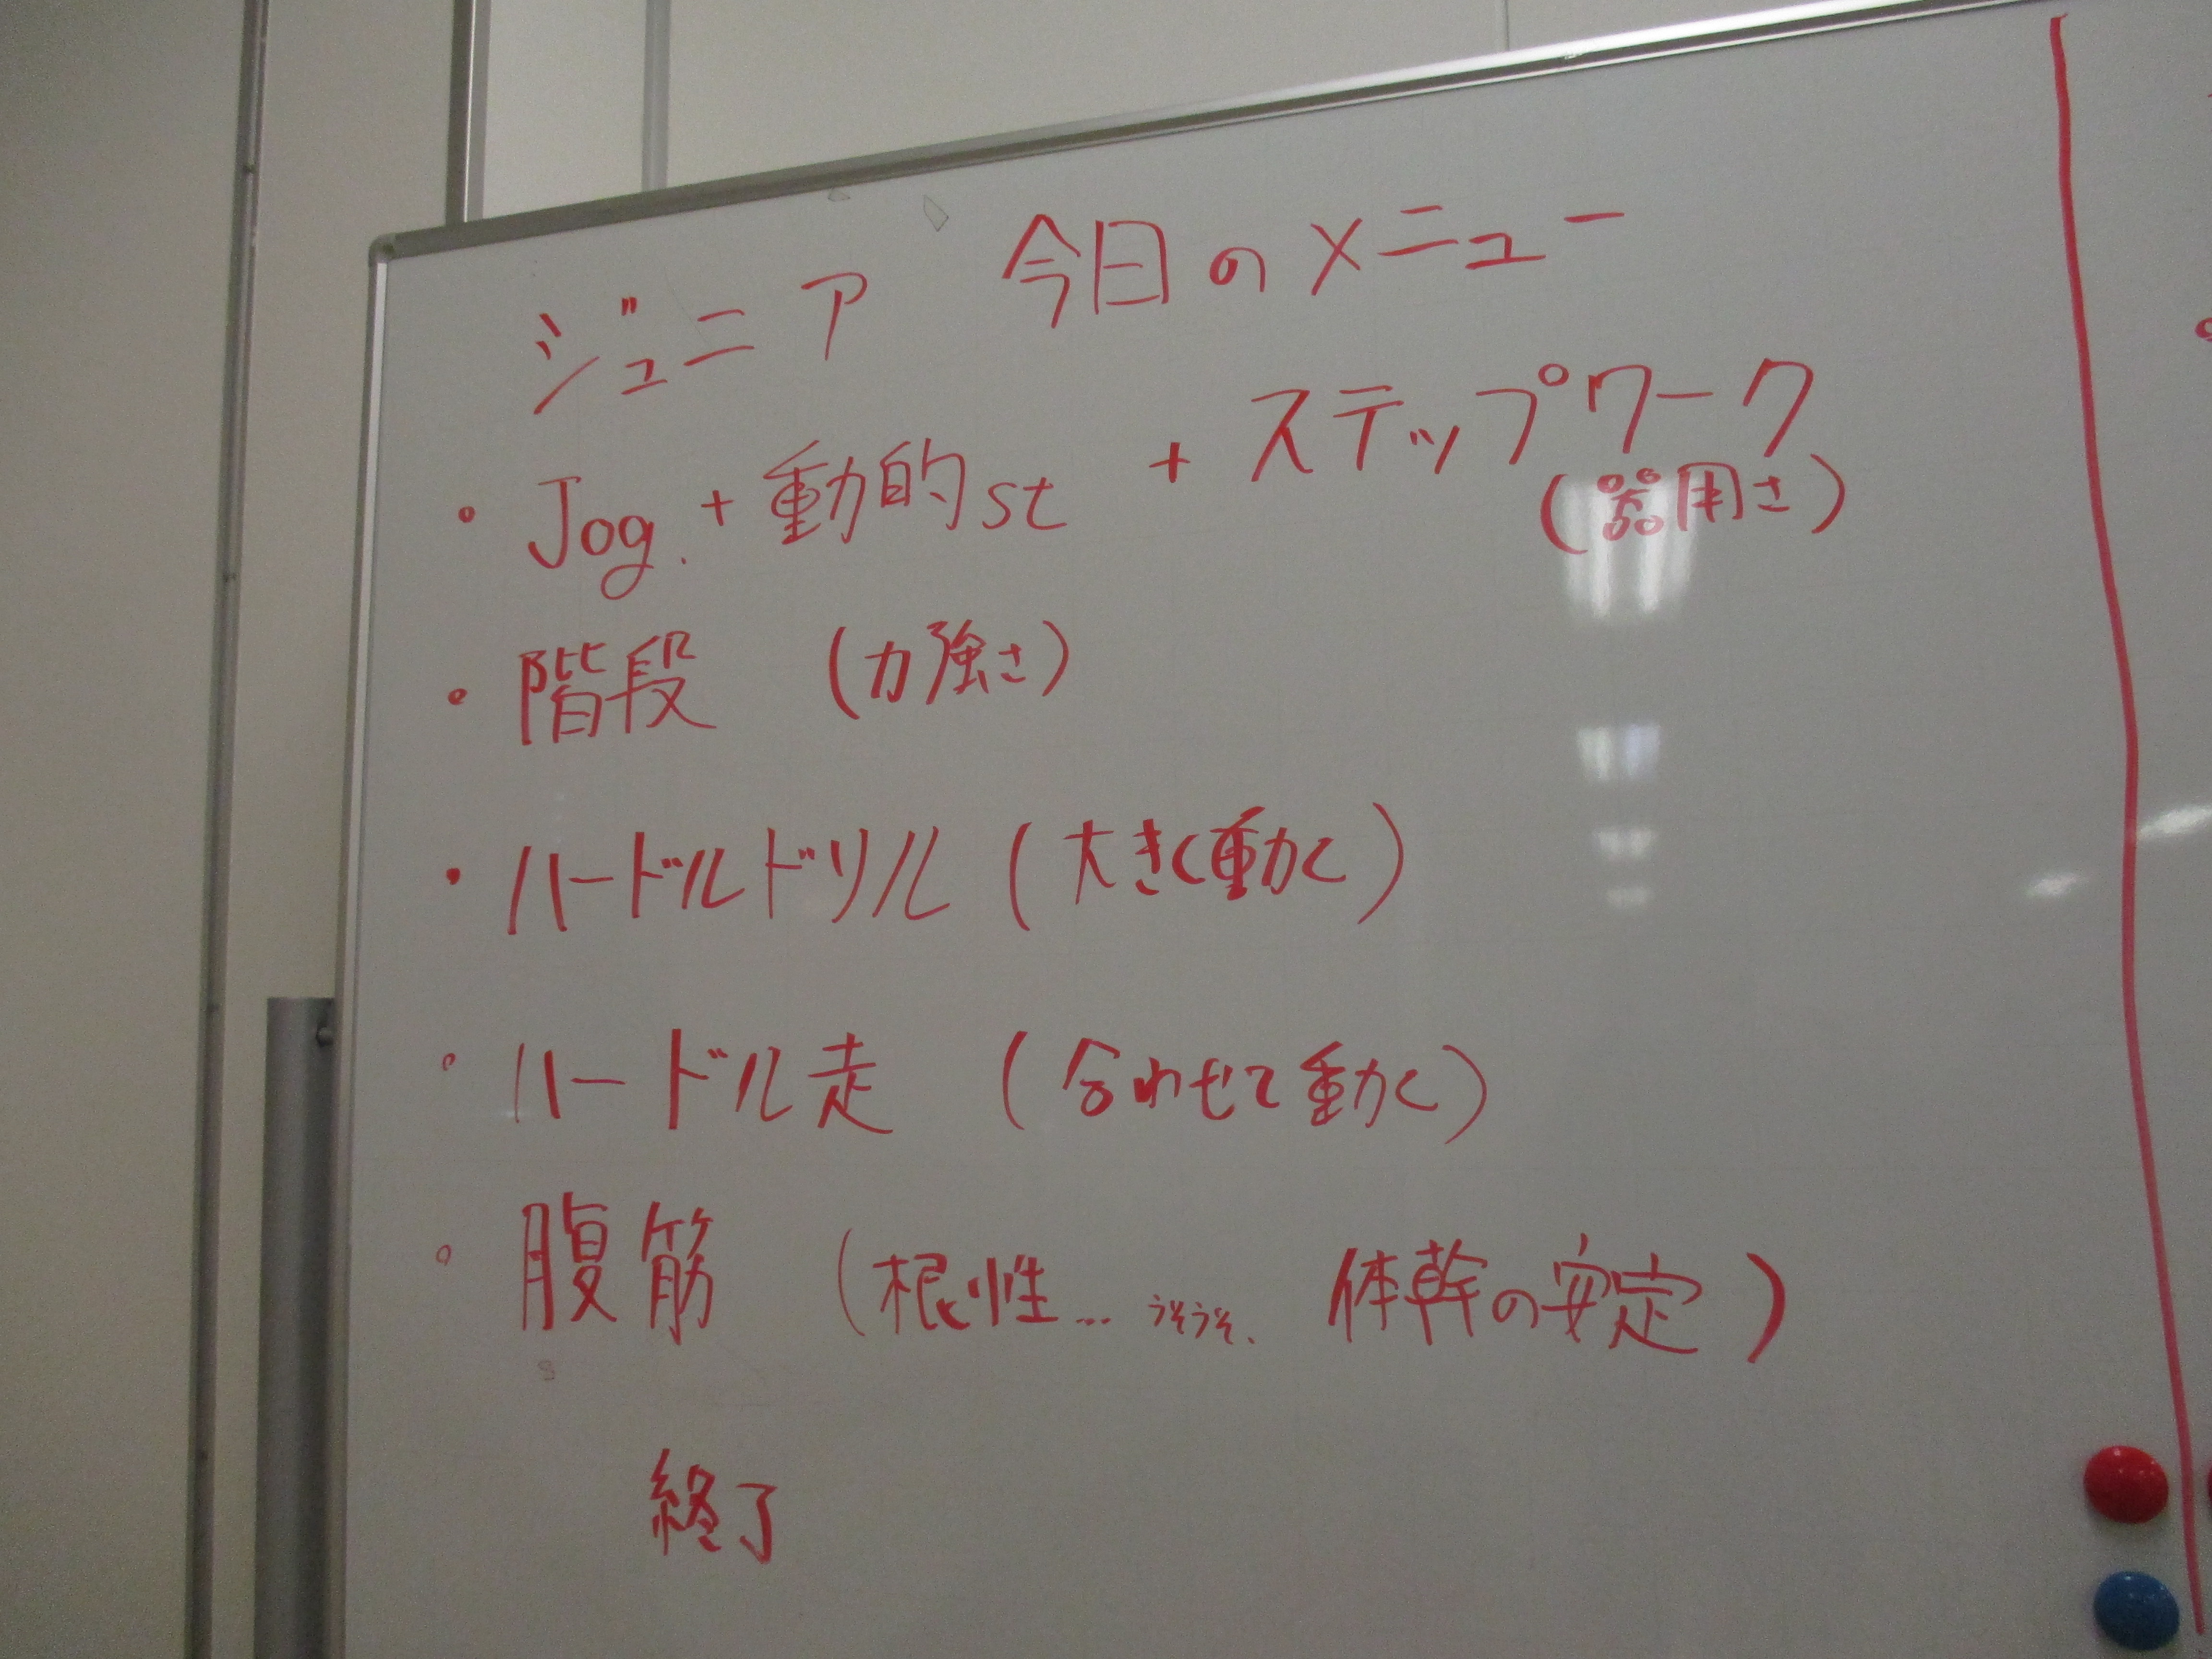 ジュニア 今日のメニュー
・Jog.+動的st + ステップワーク
(器用さ)
・階段 (力強さ)
・ハードルドリル (大きく動く)
・ハードル走 (合わせて動く)
・腹筋 (根性... うそうそ、 体幹の安定)
終了